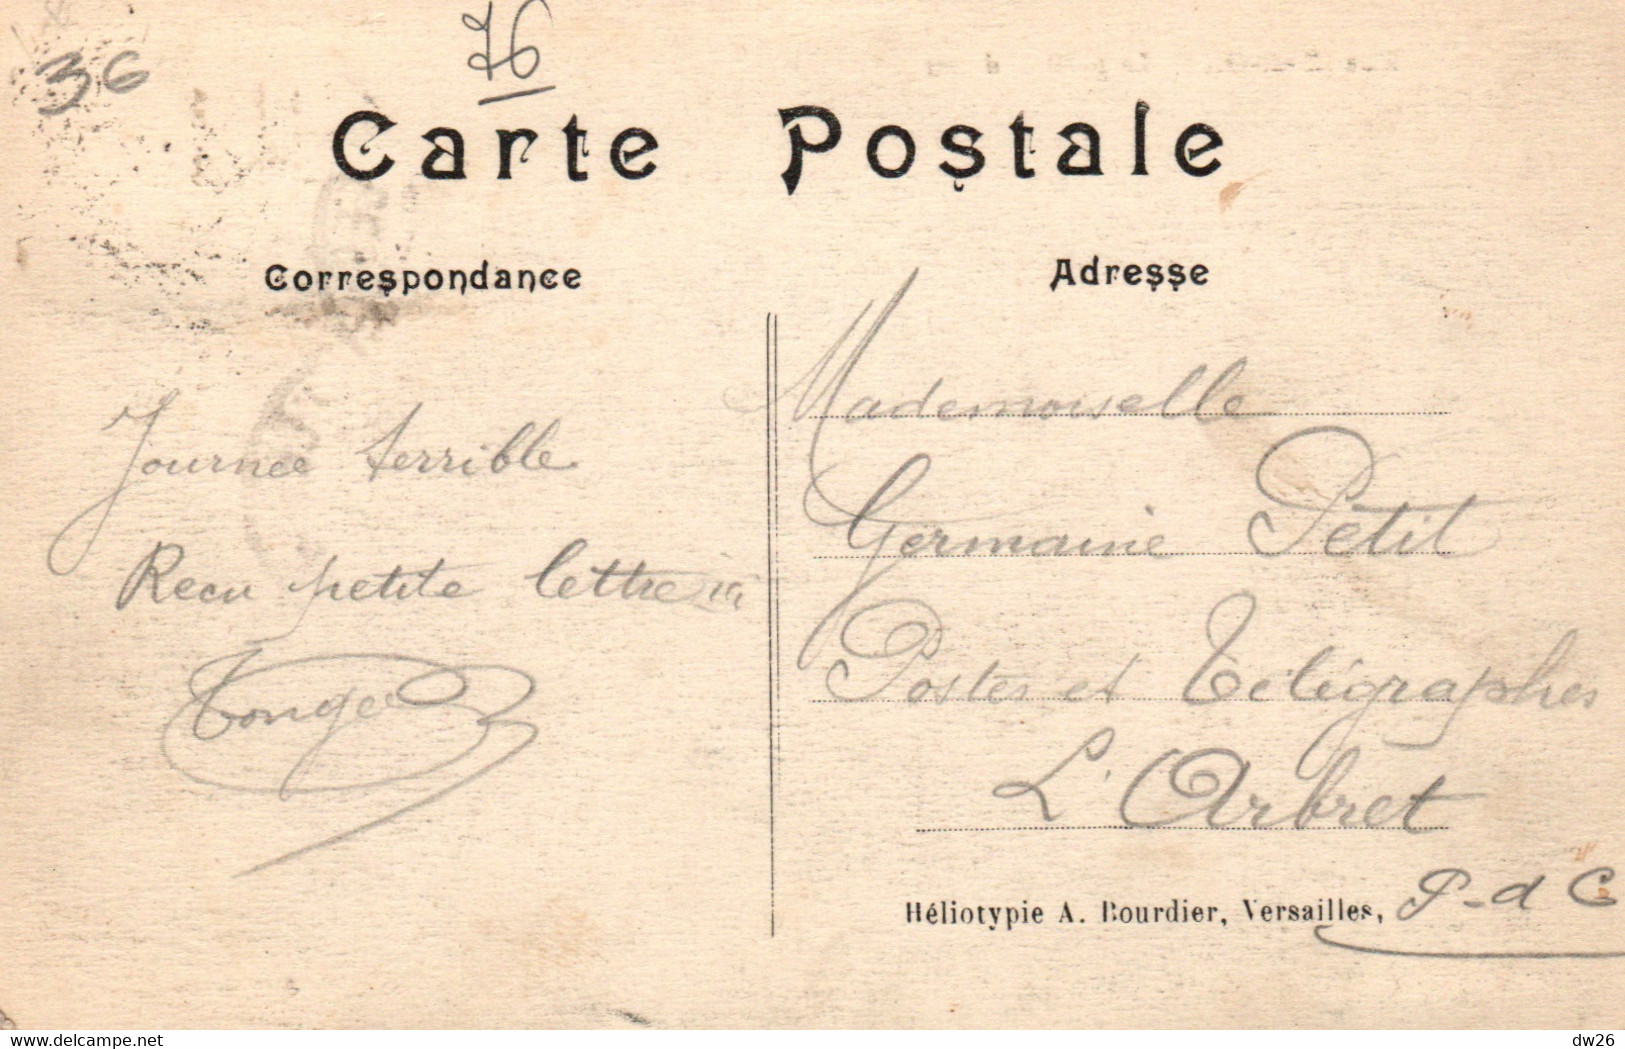 36
76
Carte Postale
Correspondance
Adresse
Journée terrible
Recu petite lettre
Mademoiselle
Germaine Petit
Postes et Télégraphes
L'Arbret
P-d C
Héliotypie A. Bourdier, Versailles,
delcampe.net
dw26